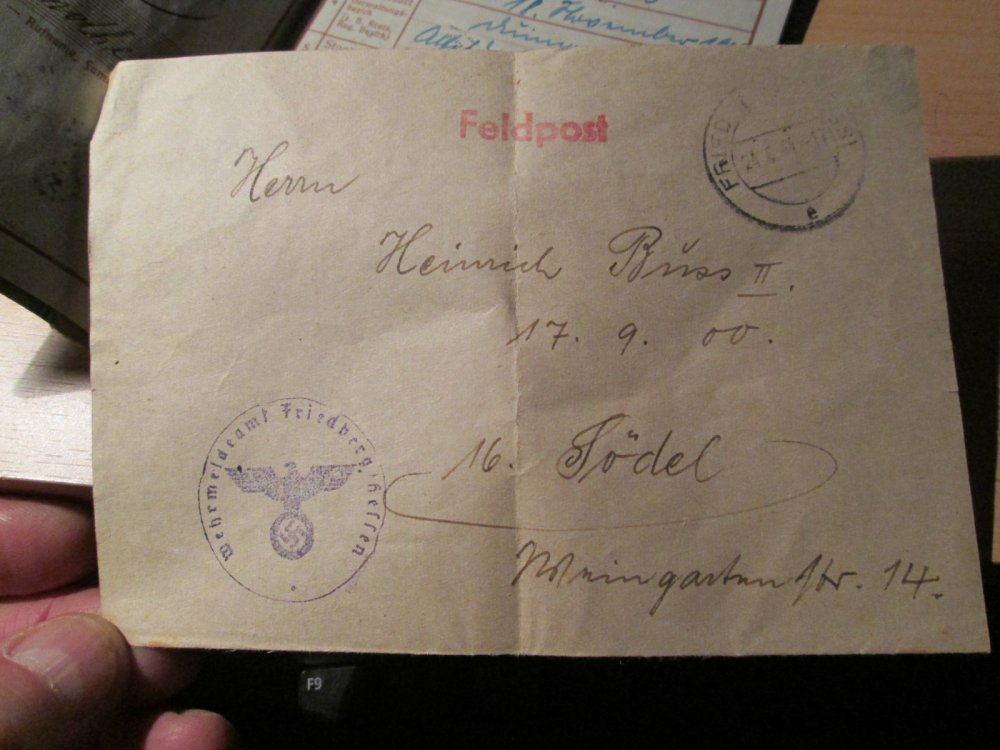 Feldpost
Herrn
Heinrich Buss II.
17. 9. 00.
16. Södel
Weingartenstr. 14.
Wehrmeldeamt Friedberg, Hessen
e
F9